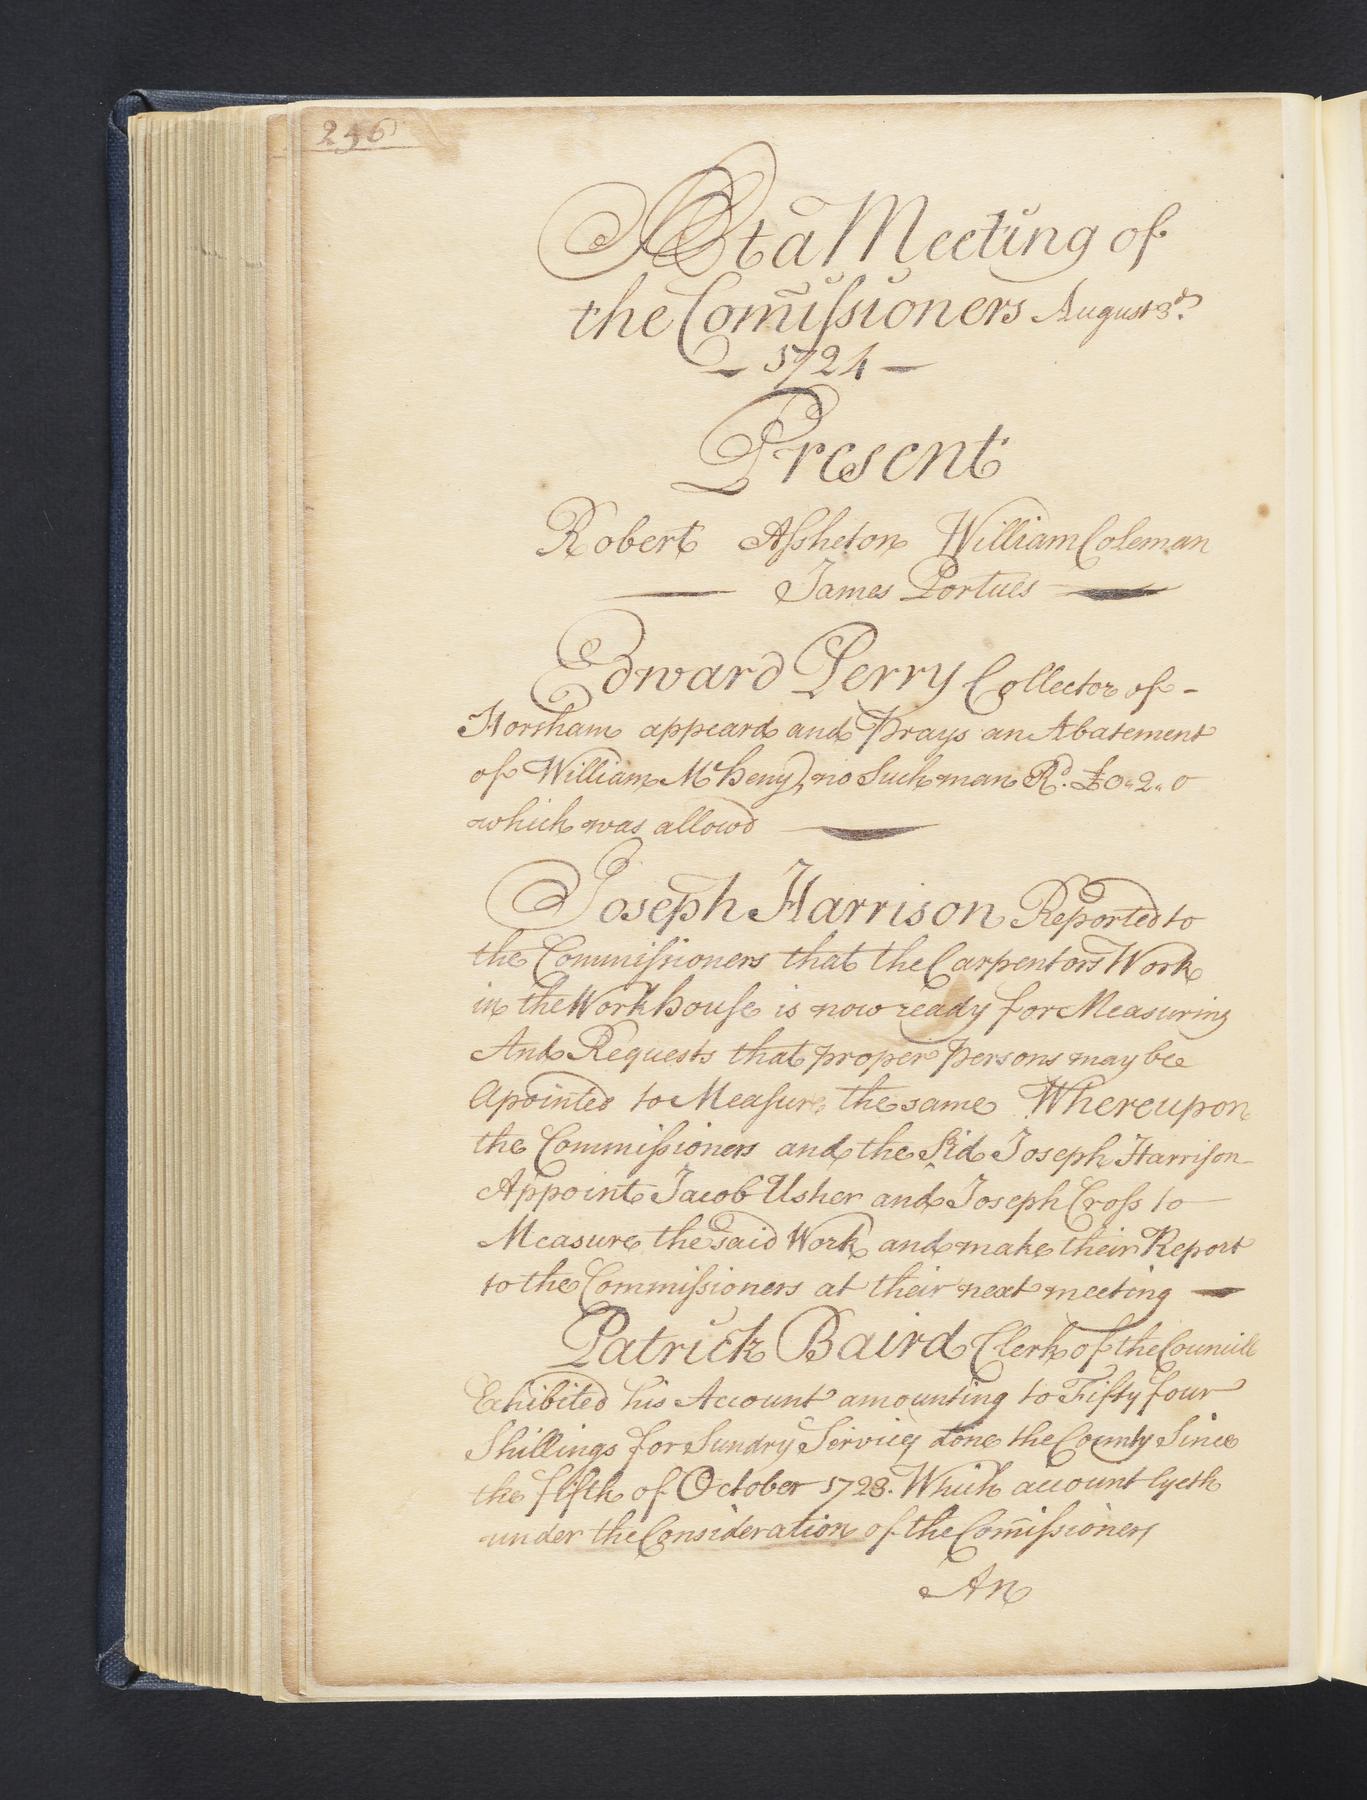 256
At a Meeting of
the Com̃issioners August 3d.
1724
Present
Robert Assheton William Coleman
James Portues
Edward Perry Collector of -
Horsham appeard and Prays an Abatement
of William McHeny, no Such man Rd. £0"2"0
which was allowd
Joseph Harrison Reported to
the Commissioners that the Carpentors Work
in the Workhouse is now ready for Measuring
And Requests that proper Persons may bee
Apointed to Measure the same Whereupon
the Commissioners and the Sd Joseph Harrison
Appoint Jacob Usher and Joseph Cross to
Measure the said Work and make their Report
to the Commissioners at their next meeting
Patrick Baird Clerk of the Councill
Exhibited his Account amounting to Fifty four
Shillings for Sundry Services done the County Since
the fifth of October 1723. Which account lyeth
under the Consideration of the Com̃issioners
An